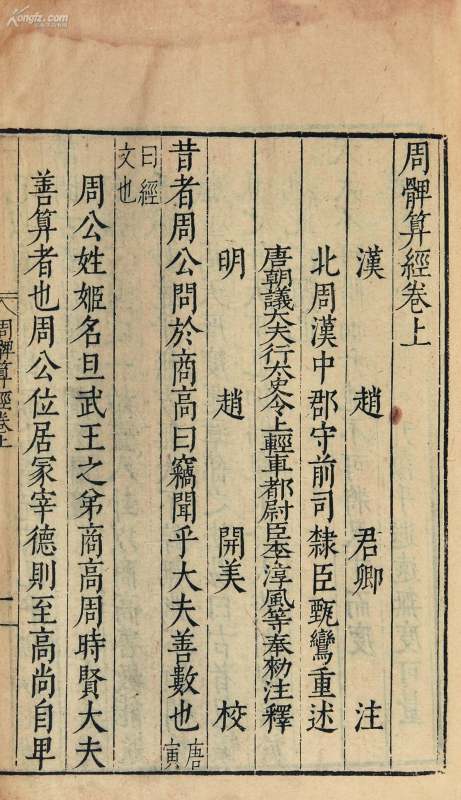 Kongfz.com
周髀算經卷上
漢 趙 君卿 注
北周漢中郡守前司隸臣甄鸞重述
唐朝議大夫行太史令上輕車都尉臣李淳風等奉勑注釋
明 趙 開美 校
昔者周公問於商高曰竊聞乎大夫善數也唐寅
曰經文也
周公姓姬名旦武王之弟商高周時賢大夫
善算者也周公位居冢宰德則至高尚自卑
周髀算經卷上 一